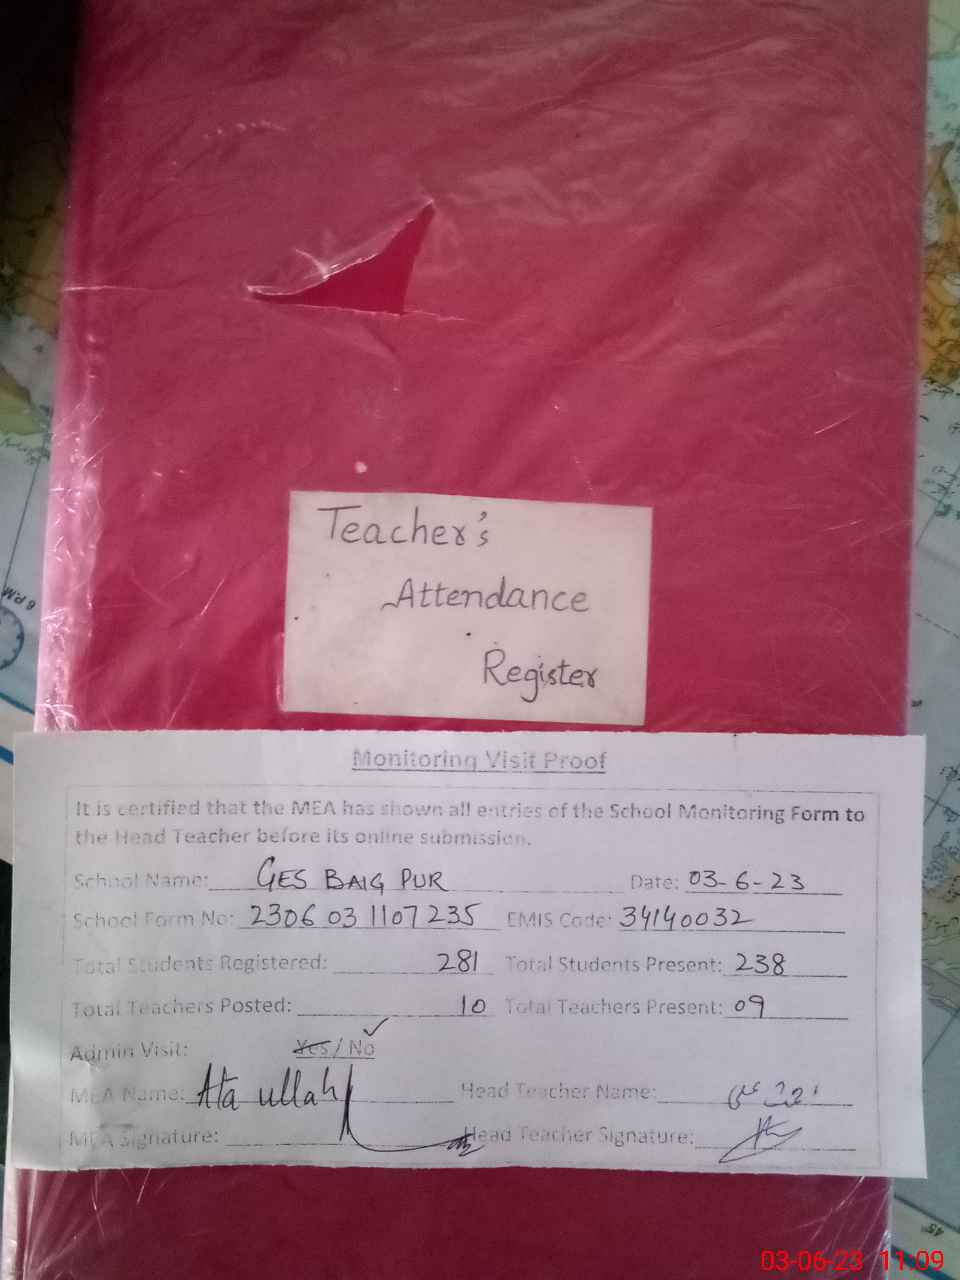 Teacher's
Attendance
Register
Monitoring Visit Proof
It is certified that the MEA has shown all entries of the School Monitoring Form to
the Head Teacher before its online submission.
School Name: GES BAIG PUR Date: 03-6-23
School Form No: 2306 03 1107 235 EMIS Code: 34140032
Total Students Registered: 281 Total Students Present: 238
Total Teachers Posted: 10 Total Teachers Present: 09
Admin Visit: Yes / No
MEA Name: Ata ullah Head Teacher Name:
MEA Signature: Head Teacher Signature:
6 P.M
45°
03-06-23 11:09